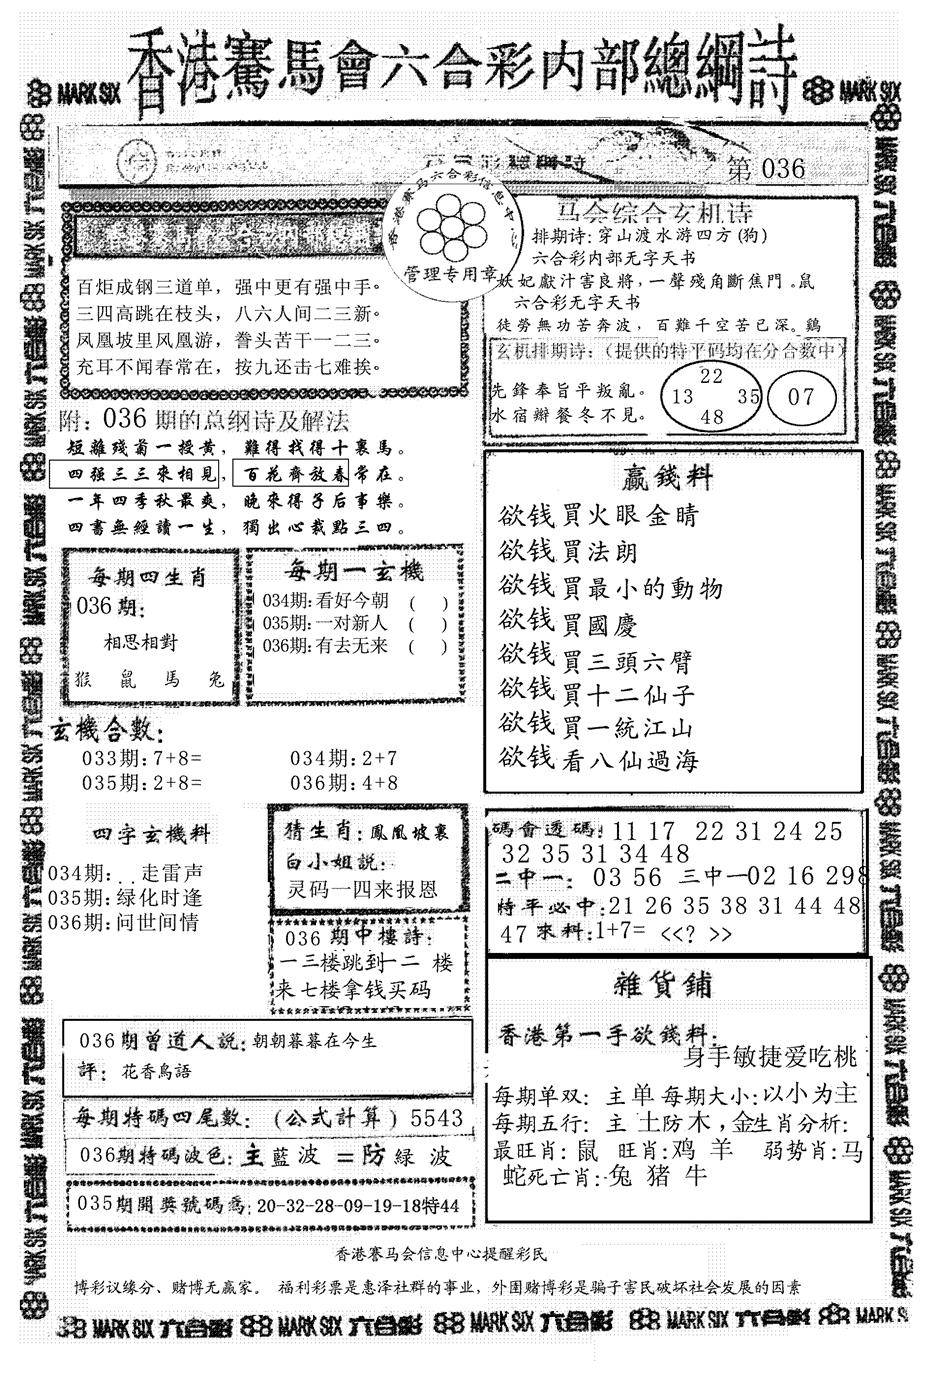 香港賽馬會六合彩内部總綱詩
MARK SIX
MARK SIX
第 036
香港赛马六合彩信息中
管理专用章
百炬成钢三道单，强中更有强中手。
三四高跳在枝头，八六人间二三新。
凤凰坡里凤凰游，誊头苦干一二三。
充耳不闻春常在，按九还击七难挨。
马会综合玄机诗
排期诗: 穿山渡水游四方 (狗)
六合彩内部无字天书
妖妃獻汁害良將，一聲殘角斷焦門。鼠
六合彩无字天书
徒勞無功苦奔波，百難千空苦已深。鷄
玄机排期诗:（提供的特平码均在分合数中）
先鋒奉旨平叛亂。
水宿辦餐冬不見。
22
13 35
48
07
附: 036 期的总纲诗及解法
短離殘菊一授黄，難得找得十裏馬。
四强三三來相見，百花齊放春常在。
一年四季秋最爽，晚來得子后事樂。
四書無經讀一生，獨出心裁點三四。
每期四生肖
036 期:
相思相對
猴 鼠 馬 兔
每期一玄機
034期: 看好今朝 ( )
035期: 一对新人 ( )
036期: 有去无来 ( )
赢錢料
欲钱買火眼金晴
欲钱買法朗
欲钱買最小的動物
欲钱買國慶
欲钱買三頭六臂
欲钱買十二仙子
欲钱買一統江山
欲钱看八仙過海
玄機合數:
033期: 7+8= 034期: 2+7
035期: 2+8= 036期: 4+8
四字玄機料
034期: . . 走雷声
035期: 绿化时逢
036期: 问世间情
猜生肖: 鳳凰坡裏
白小姐説:
灵码一四来报恩
036 期中樓詩:
一三楼跳到一二 楼
来七楼拿钱买码
碼會透碼: 11 17 22 31 24 25
32 35 31 34 48
二中一: 03 56 三中一02 16 298
特平必中: 21 26 35 38 31 44 48
47 來料: 1+7= <<? >>
雜貨鋪
香港第一手欲錢料:
身手敏捷爱吃桃
每期单双: 主单 每期大小: 以小为主
每期五行: 主 土防木，金生肖分析:
最旺肖: 鼠 旺肖: 鸡 羊 弱势肖: 马
蛇死亡肖: 兔 猪 牛
036期曾道人説: 朝朝暮暮在今生
評: 花香鳥語
每期特碼四尾數: (公式計算) 5543
036期特碼波色: 主 藍 波 = 防 緑 波
035期開獎號碼為: 20-32-28-09-19-18特44
香港賽马会信息中心提醒彩民
博彩议缘分、赌博无赢家。 福利彩票是惠泽社群的事业，外围赌博彩是骗子害民破坏社会发展的因素
MARK SIX 六合彩 MARK SIX 六合彩 MARK SIX 六合彩 MARK SIX 六合彩 MARK SIX